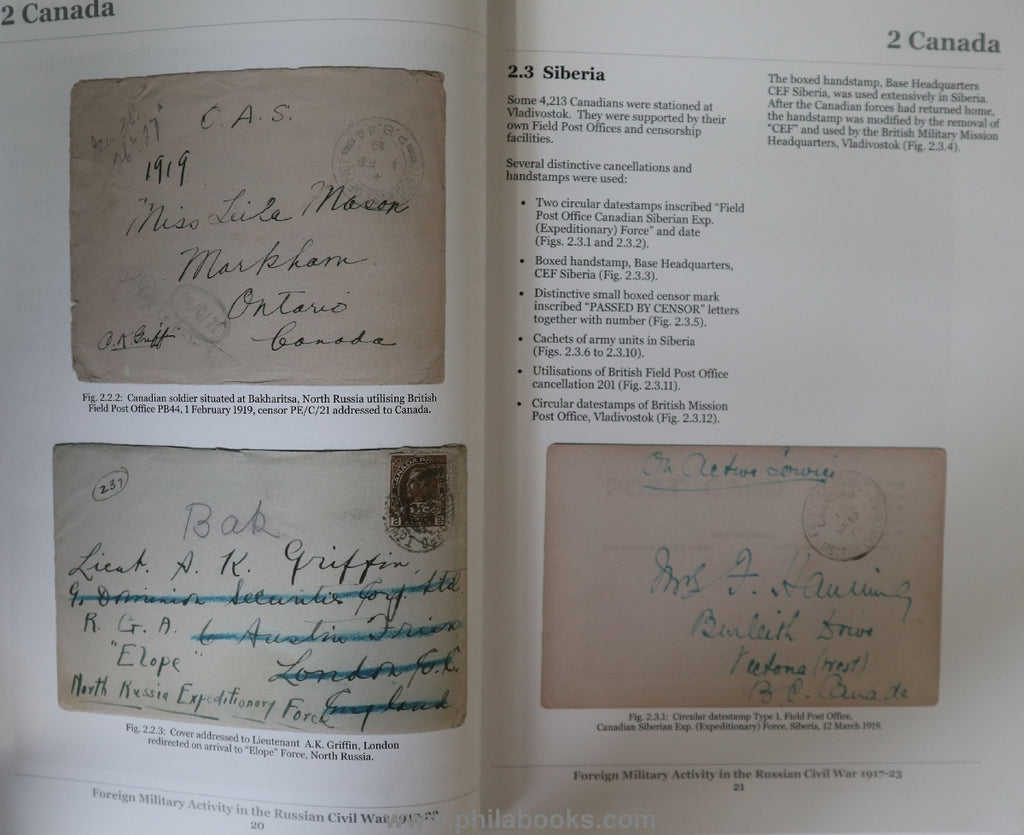 2 Canada
C. A. S.
1919
Miss Leila Mason
Markham
Ontario
Canada
A.K. Griffin
Fig. 2.2.2: Canadian soldier situated at Bakharitsa, North Russia utilising British
Field Post Office PB44, 1 February 1919, censor PE/C/21 addressed to Canada.
237
Bak
Lieut. A. K. Griffin,
c/o Dominion Securities Corp. Ltd.
R. G. A. 6 Austin Friars
"Elope" London E.C.
North Russia Expeditionary Force England
Fig. 2.2.3: Cover addressed to Lieutenant A.K. Griffin, London
redirected on arrival to "Elope" Force, North Russia.
Foreign Military Activity in the Russian Civil War 1917-23
20
2 Canada
2.3 Siberia
Some 4,213 Canadians were stationed at
Vladivostok. They were supported by their
own Field Post Offices and censorship
facilities.
Several distinctive cancellations and
handstamps were used:
• Two circular datestamps inscribed "Field
Post Office Canadian Siberian Exp.
(Expeditionary) Force" and date
(Figs. 2.3.1 and 2.3.2).
• Boxed handstamp, Base Headquarters,
CEF Siberia (Fig. 2.3.3).
• Distinctive small boxed censor mark
inscribed "PASSED BY CENSOR" letters
together with number (Fig. 2.3.5).
• Cachets of army units in Siberia
(Figs. 2.3.6 to 2.3.10).
• Utilisations of British Field Post Office
cancellation 201 (Fig. 2.3.11).
• Circular datestamps of British Mission
Post Office, Vladivostok (Fig. 2.3.12).
The boxed handstamp, Base Headquarters
CEF Siberia, was used extensively in Siberia.
After the Canadian forces had returned home,
the handstamp was modified by the removal of
"CEF" and used by the British Military Mission
Headquarters, Vladivostok (Fig. 2.3.4).
On Active Service
POST CARD
Mrs F.
Burleith Drive
Victoria (West)
B.C. Canada
Fig. 2.3.1: Circular datestamp Type 1, Field Post Office,
Canadian Siberian Exp. (Expeditionary) Force, Siberia, 12 March 1919.
Foreign Military Activity in the Russian Civil War 1917-23
21
www.philabooks.com